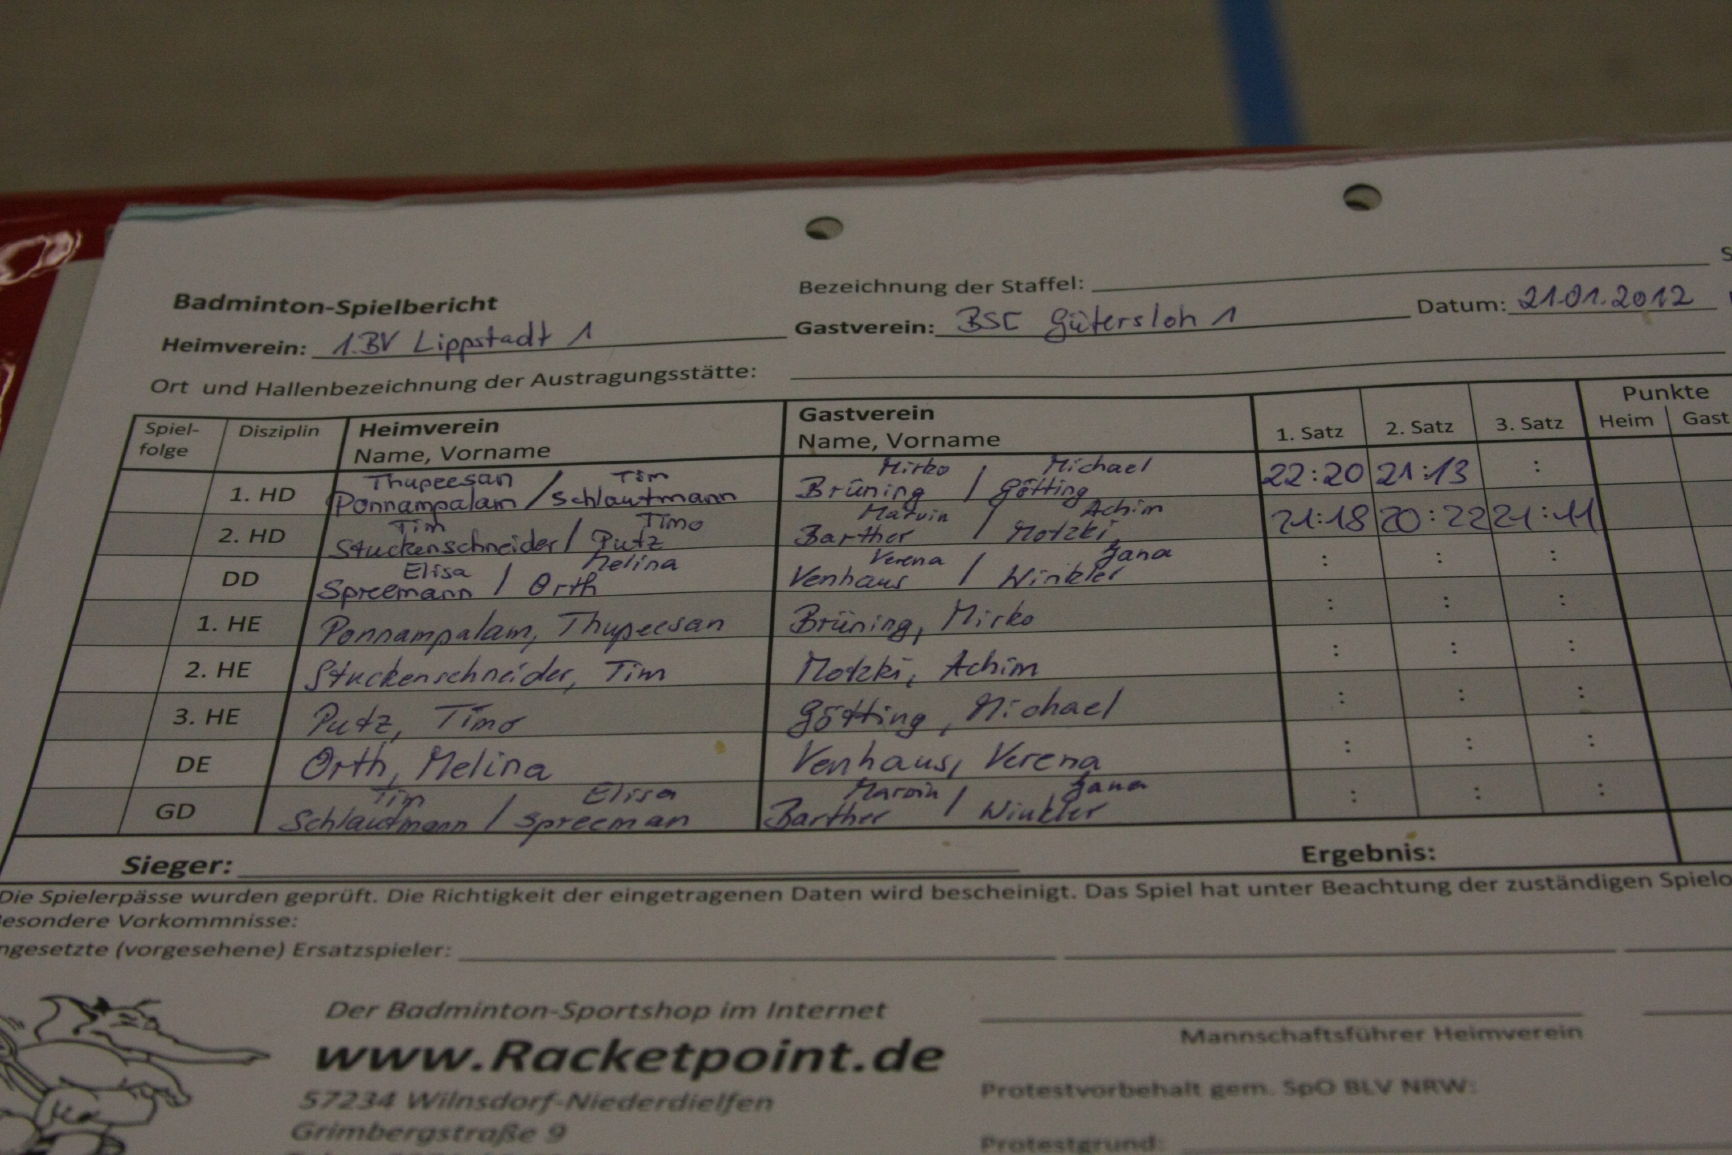 Badminton-Spielbericht
Bezeichnung der Staffel:
Heimverein: 1.BV Lippstadt 1 Gastverein: BSC Gütersloh 1 Datum: 21.01.2012
Ort und Hallenbezeichnung der Austragungsstätte:
Spiel-folge Disziplin Heimverein Name, Vorname Gastverein Name, Vorname 1. Satz 2. Satz 3. Satz Punkte Heim Gast
Thupeesan Tim Mirko Michael
1. HD Ponnampalam / Schlautmann Brüning / Götting 22:20 21:13 :
Tim Timo Marvin Achim
2. HD Stuckenschneider / Putz Barther / Motzki 21:18 20:22 21:11
Elisa Melina Verena Jana
DD Spreemann / Orth Venhaus / Winkler : : :
1. HE Ponnampalam, Thupeesan Brüning, Mirko : : :
2. HE Stuckenschneider, Tim Motzki, Achim : : :
3. HE Putz, Timo Götting, Michael : : :
DE Orth, Melina Venhaus, Verena : : :
Tim Elisa Marvin Jana
GD Schlautmann / Spreeman Barther / Winkler : : :
Sieger: Ergebnis:
Die Spielerpässe wurden geprüft. Die Richtigkeit der eingetragenen Daten wird bescheinigt. Das Spiel hat unter Beachtung der zuständigen Spielo
Besondere Vorkommnisse:
ngesetzte (vorgesehene) Ersatzspieler:
Der Badminton-Sportshop im Internet
www.Racketpoint.de
57234 Wilnsdorf-Niederdielfen
Grimbergstraße 9
Mannschaftsführer Heimverein
Protestvorbehalt gem. SpO BLV NRW:
Protestgrund: